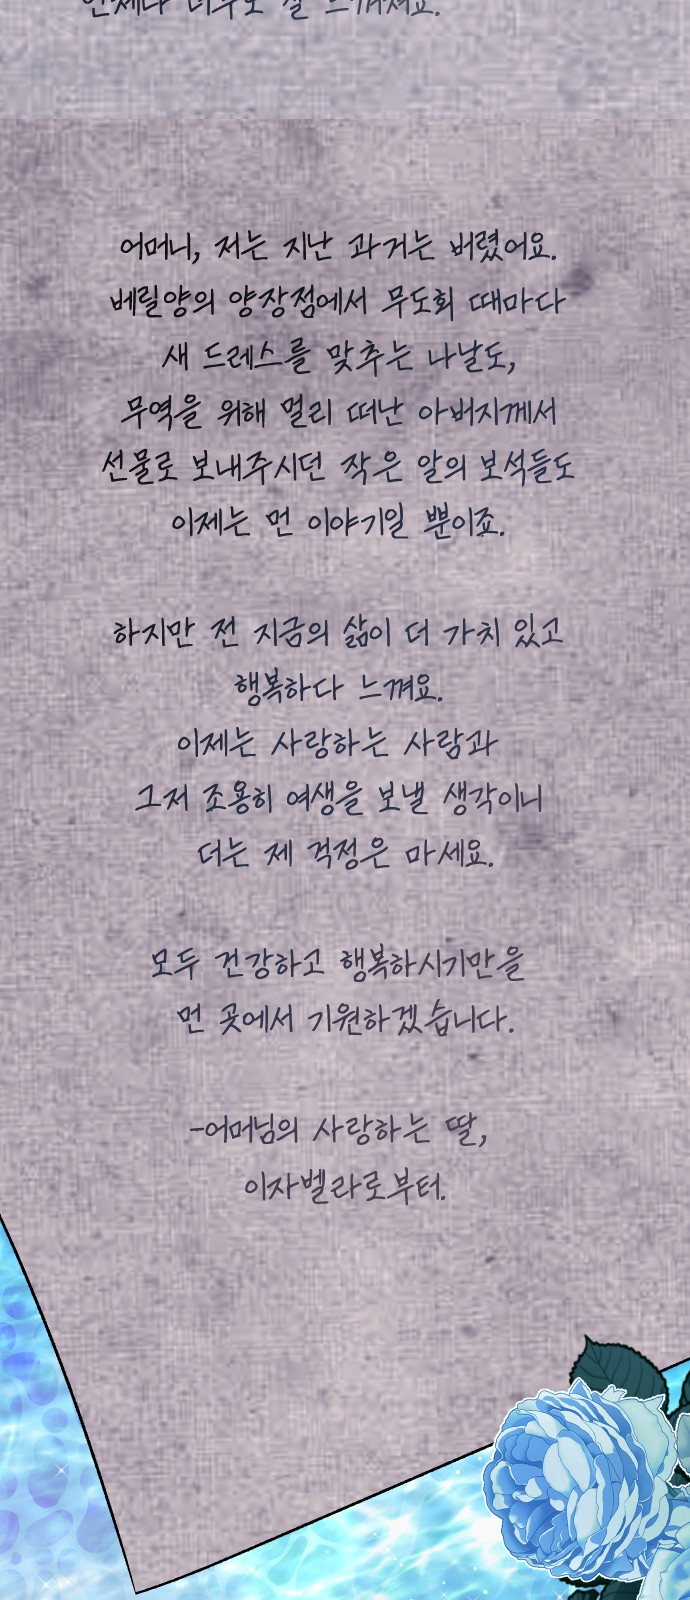 언제나 너무도 잘 느껴져요.
어머니, 저는 지난 과거는 버렸어요.
베릴양의 양장점에서 무도회 때마다
새 드레스를 맞추는 나날도,
무역을 위해 멀리 떠난 아버지께서
선물로 보내주시던 작은 알의 보석들도
이제는 먼 이야기일 뿐이죠.
하지만 전 지금의 삶이 더 가치 있고
행복하다 느껴요.
이제는 사랑하는 사람과
그저 조용히 여생을 보낼 생각이니
더는 제 걱정은 마세요.
모두 건강하고 행복하시기만을
먼 곳에서 기원하겠습니다.
-어머님의 사랑하는 딸,
이자벨라로부터.